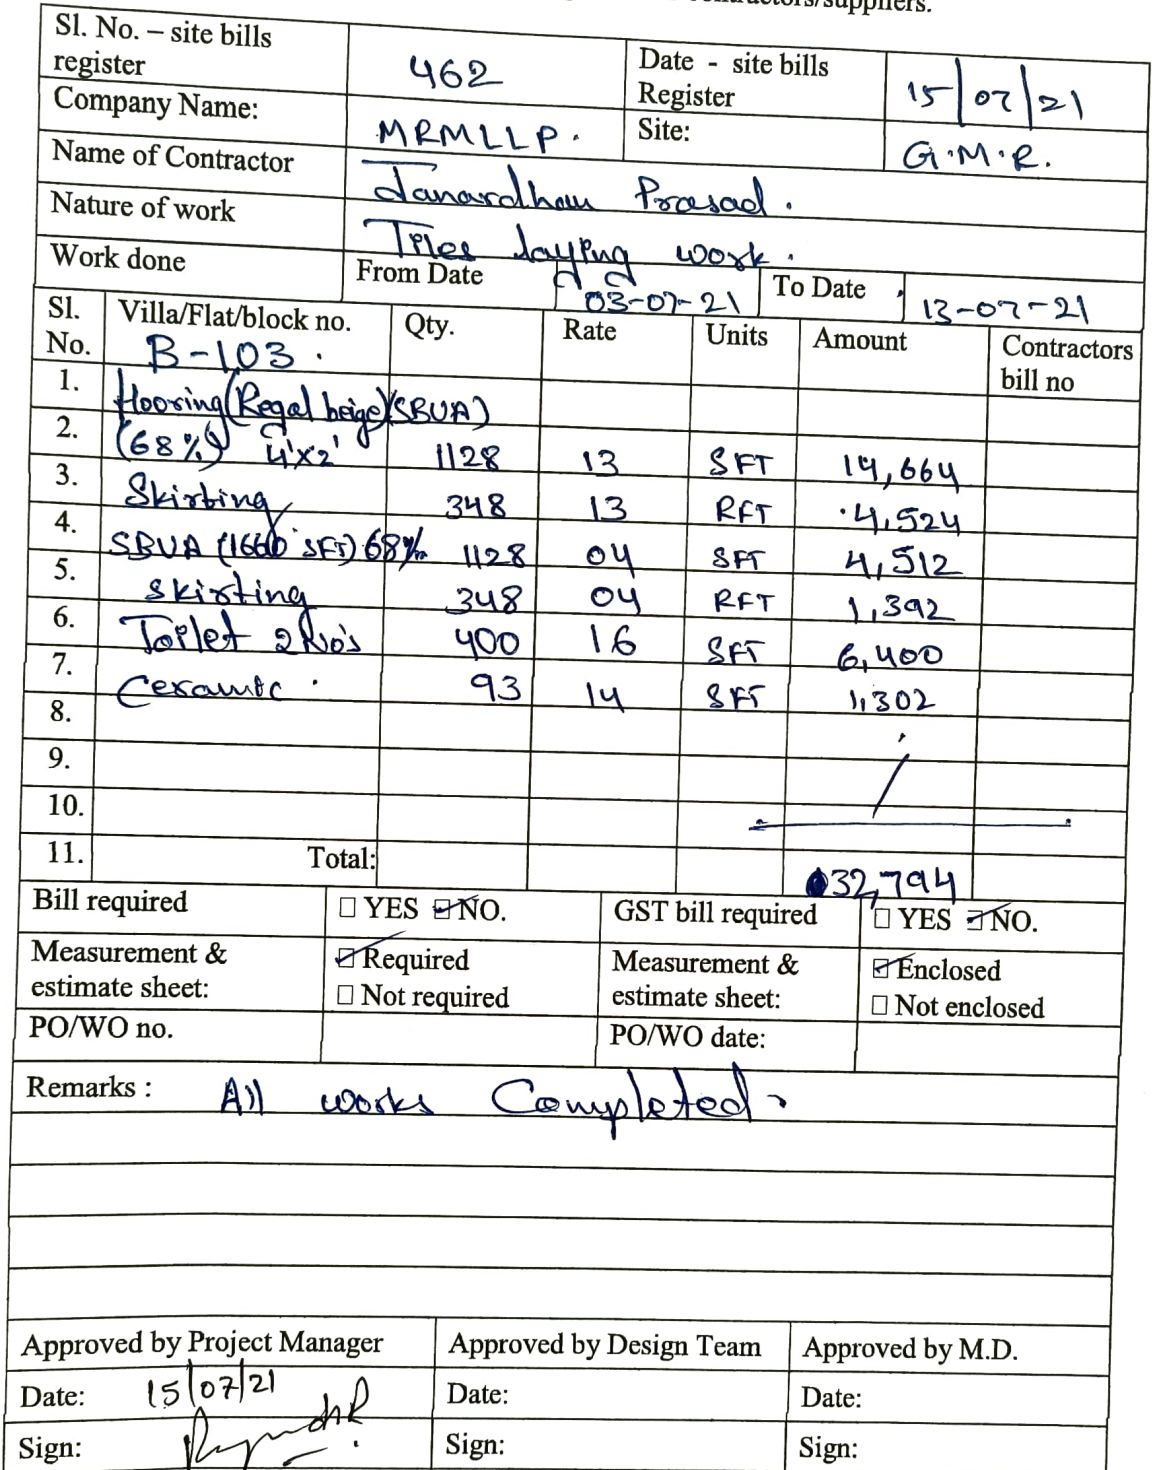 Sl. No. – site bills register 462 Date - site bills Register 15/07/21
Company Name: MRMLLP. Site: G.M.R.
Name of Contractor Janardhan Prasad.
Nature of work Tiles laying work.
Work done From Date 03-07-21 To Date 13-07-21
Sl. No. Villa/Flat/block no. Qty. Rate Units Amount Contractors bill no
B-103.
1. Flooring (Regal beige) (SBUA)
2. (68%) 4'x2' 1128 13 SFT 14,664
3. Skirting 348 13 RFT 4,524
4. SBUA (1660 SFT) 68% 1128 04 SFT 4,512
5. Skirting 348 04 RFT 1,392
6. Toilet 2No's 400 16 SFT 6,400
7. Ceramic. 93 14 SFT 1,302
8.
9.
10.
11. Total: 32,794
Bill required □ YES ☑ NO. GST bill required □ YES ☑ NO.
Measurement & estimate sheet: ☑ Required □ Not required Measurement & estimate sheet: ☑ Enclosed □ Not enclosed
PO/WO no. PO/WO date:
Remarks : All works Completed.
Approved by Project Manager Approved by Design Team Approved by M.D.
Date: 15/07/21 Date: Date:
Sign: Sign: Sign: